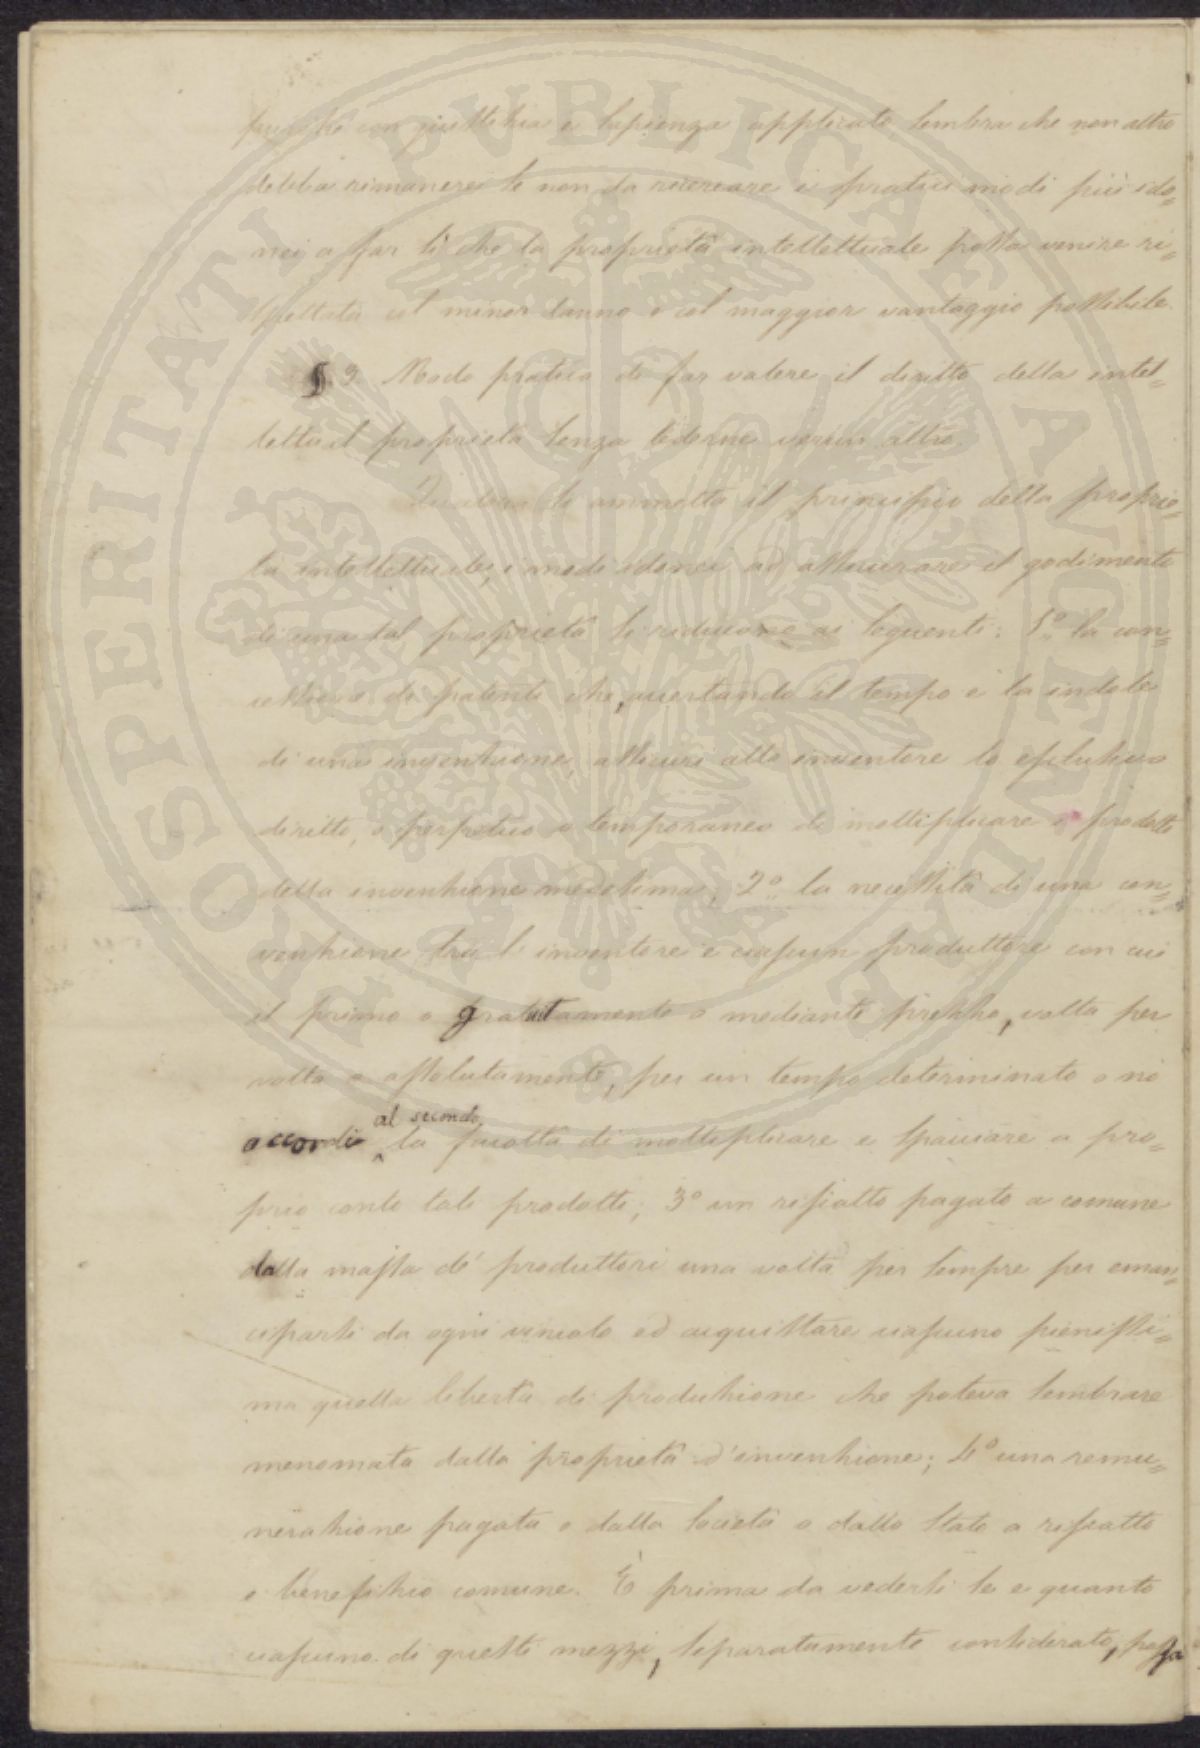 purchè con giustizia e sapienza applicato, sembra che non altro
debba rimanere se non da ricercare i pratici modi più ido=
nei a far sì che la proprietà intellettuale possa venire ri=
spettata col minor danno e col maggior vantaggio possibile.
§ 9 Modo pratico di far valere il diritto della intel=
lettual proprietà senza lederne verun altro.
Qualora si ammetta il principio della proprie=
tà intellettuale, i modi idonei ad assicurare il godimento
di una tal proprietà si riducono ai seguenti: 1º la con=
cessione di patenti che, accertando il tempo e la indole
di una invenzione, assicuri allo inventore lo esclusivo
diritto, o perpetuo o temporaneo di moltiplicare i prodotti
della invenzione medesima; 2º la necessità di una con=
venzione tra l'inventore e ciascun produttore con cui
il primo o gratuitamente o mediante prezzo, volta per
volta o assolutamente, per un tempo determinato o no
accordi al secondo la facoltà di moltiplicare e spacciare a pro=
prio conto tali prodotti; 3º un riscatto pagato a comune
dalla massa de' produttori una volta per sempre per eman=
ciparsi da ogni vincolo ed acquistare ciascuno pienissi=
ma quella libertà di produzione che poteva sembrare
menomata dalla proprietà d'invenzione; 4º una remu=
nerazione pagata o dalla Società o dallo Stato a riscatto
e benefizio comune. È prima da vedersi se e quanto
ciascuno di questi mezzi, separatamente considerato, possa
PROSPERITATI PVBLICAE AVGENDAE